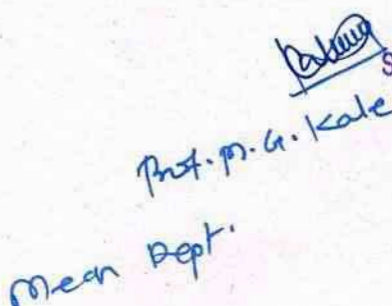 S
Prof. M. G. Kale
Mech Dept.